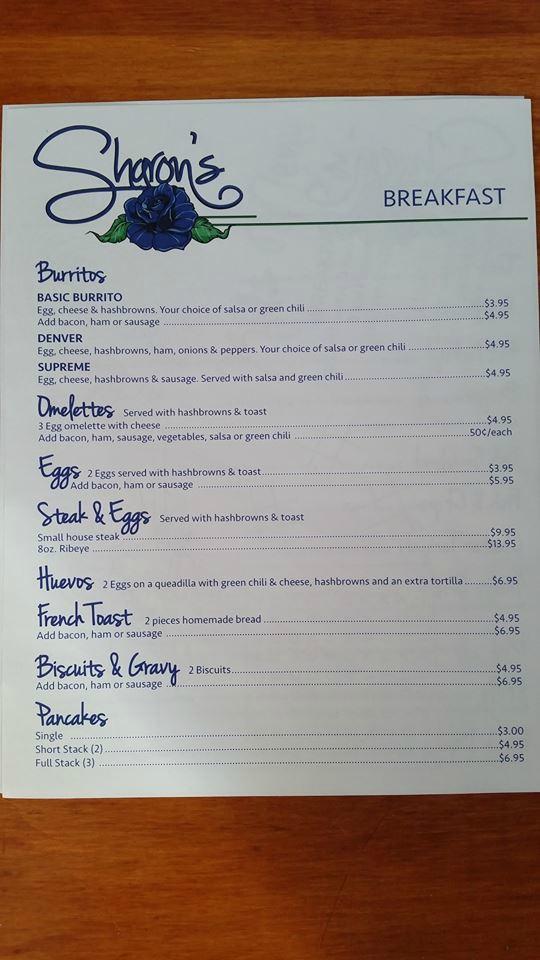 Sharon's
BREAKFAST
Burritos
BASIC BURRITO
Egg, cheese & hashbrowns. Your choice of salsa or green chili ........ $3.95
Add bacon, ham or sausage ........ $4.95
DENVER
Egg, cheese, hashbrowns, ham, onions & peppers. Your choice of salsa or green chili ........ $4.95
SUPREME
Egg, cheese, hashbrowns & sausage. Served with salsa and green chili ........ $4.95
Omelettes Served with hashbrowns & toast
3 Egg omelette with cheese ........ $4.95
Add bacon, ham, sausage, vegetables, salsa or green chili ........ 50¢/each
Eggs 2 Eggs served with hashbrowns & toast ........ $3.95
Add bacon, ham or sausage ........ $5.95
Steak & Eggs Served with hashbrowns & toast
Small house steak ........ $9.95
8oz. Ribeye ........ $13.95
Huevos 2 Eggs on a queadilla with green chili & cheese, hashbrowns and an extra tortilla ........ $6.95
French Toast 2 pieces homemade bread ........ $4.95
Add bacon, ham or sausage ........ $6.95
Biscuits & Gravy 2 Biscuits ........ $4.95
Add bacon, ham or sausage ........ $6.95
Pancakes
Single ........ $3.00
Short Stack (2) ........ $4.95
Full Stack (3) ........ $6.95